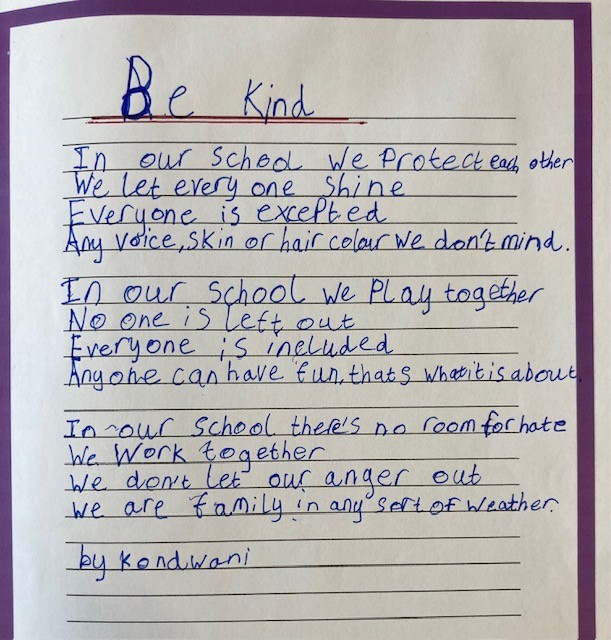 Be Kind
In our school we protect each other
We let every one shine
Everyone is excepted
Any voice, skin or hair colour we don't mind.
In our school we play together
No one is left out
Everyone is included
Anyone can have fun, thats what it is about.
In our school there's no room for hate
We work together
We don't let our anger out
We are family in any sort of weather.
by Kondwani